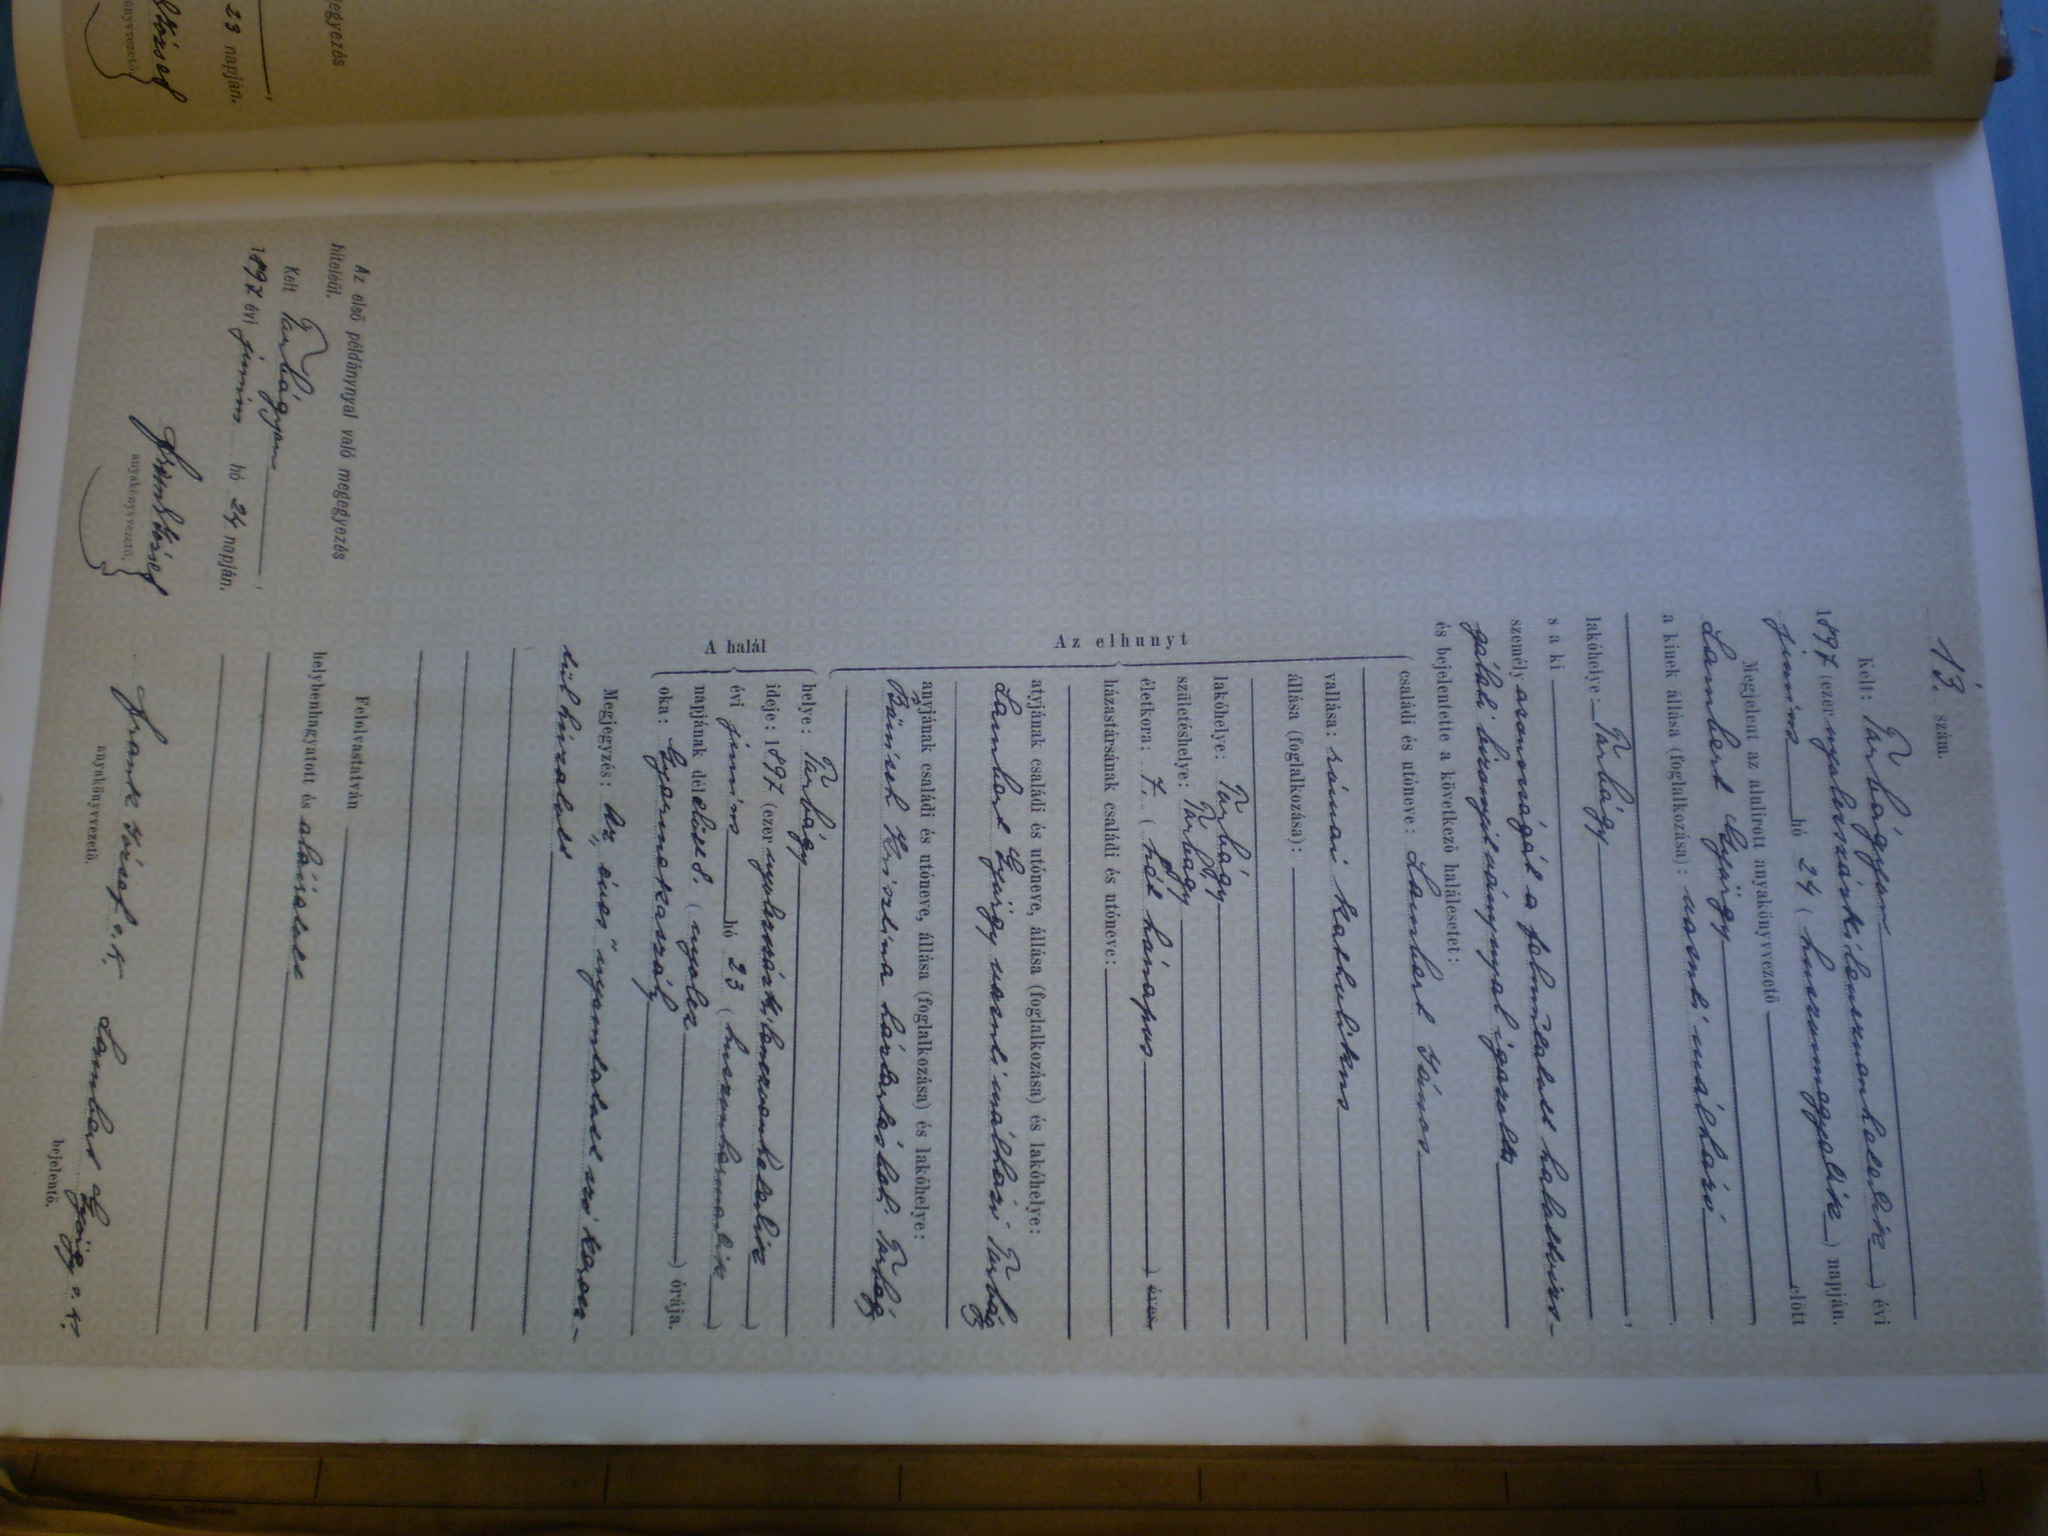 13. szám.
Kelt: Torbágyon
1897 (ezernyolczszázkilenczvenhetedik) évi
június hó 24 (huszonnegyedik) napján.
Megjelent az alulirott anyakönyvvezető előtt
Lambert György
a kinek állása (foglalkozása): uasuti málházó
lakóhelye: Torbágy,
s a ki
személyazonosságát a felmutatott halottvizs-
gálati bizonyitványnyal igazolta
és bejelentette a következő halálesetet:
Az elhunyt
családi és utóneve: Lambert János
vallása: római katholikus
állása (foglalkozása):
lakóhelye: Torbágy
születéshelye: Torbágy
életkora: 7. (hét hónapos) éves.
házastársának családi és utóneve:
atyjának családi és utóneve, állása (foglalkozása) és lakóhelye:
Lambert György uasuti málházó Torbágy
anyjának családi és utóneve, állása (foglalkozása) és lakóhelye:
Krisztina háztartásbeli Torbágy
A halál
helye: Torbágy
ideje: 1897 (ezernyolczszázkilenczvenhetedik)
évi június hó 23 (huszonharmadik)
napjának délelőtt 8. (nyolcz) órája.
oka: Gyermekaszály
Megjegyzés: Az "éves" nyomtatott szó keresz-
tül húzatott
Felolvastatván
helybenhagyatott és aláiratott
Frank József s. k.
anyakönyvvezető.
Lambert György s. k.
bejelentő.
Az első példánynyal való megegyezés
hiteléül.
Kelt Torbágyon,
1897 évi június hó 24 napján.
Frank József
anyakönyvvezető.
megegyezés
23 napján.
József
anyakönyvvezető.